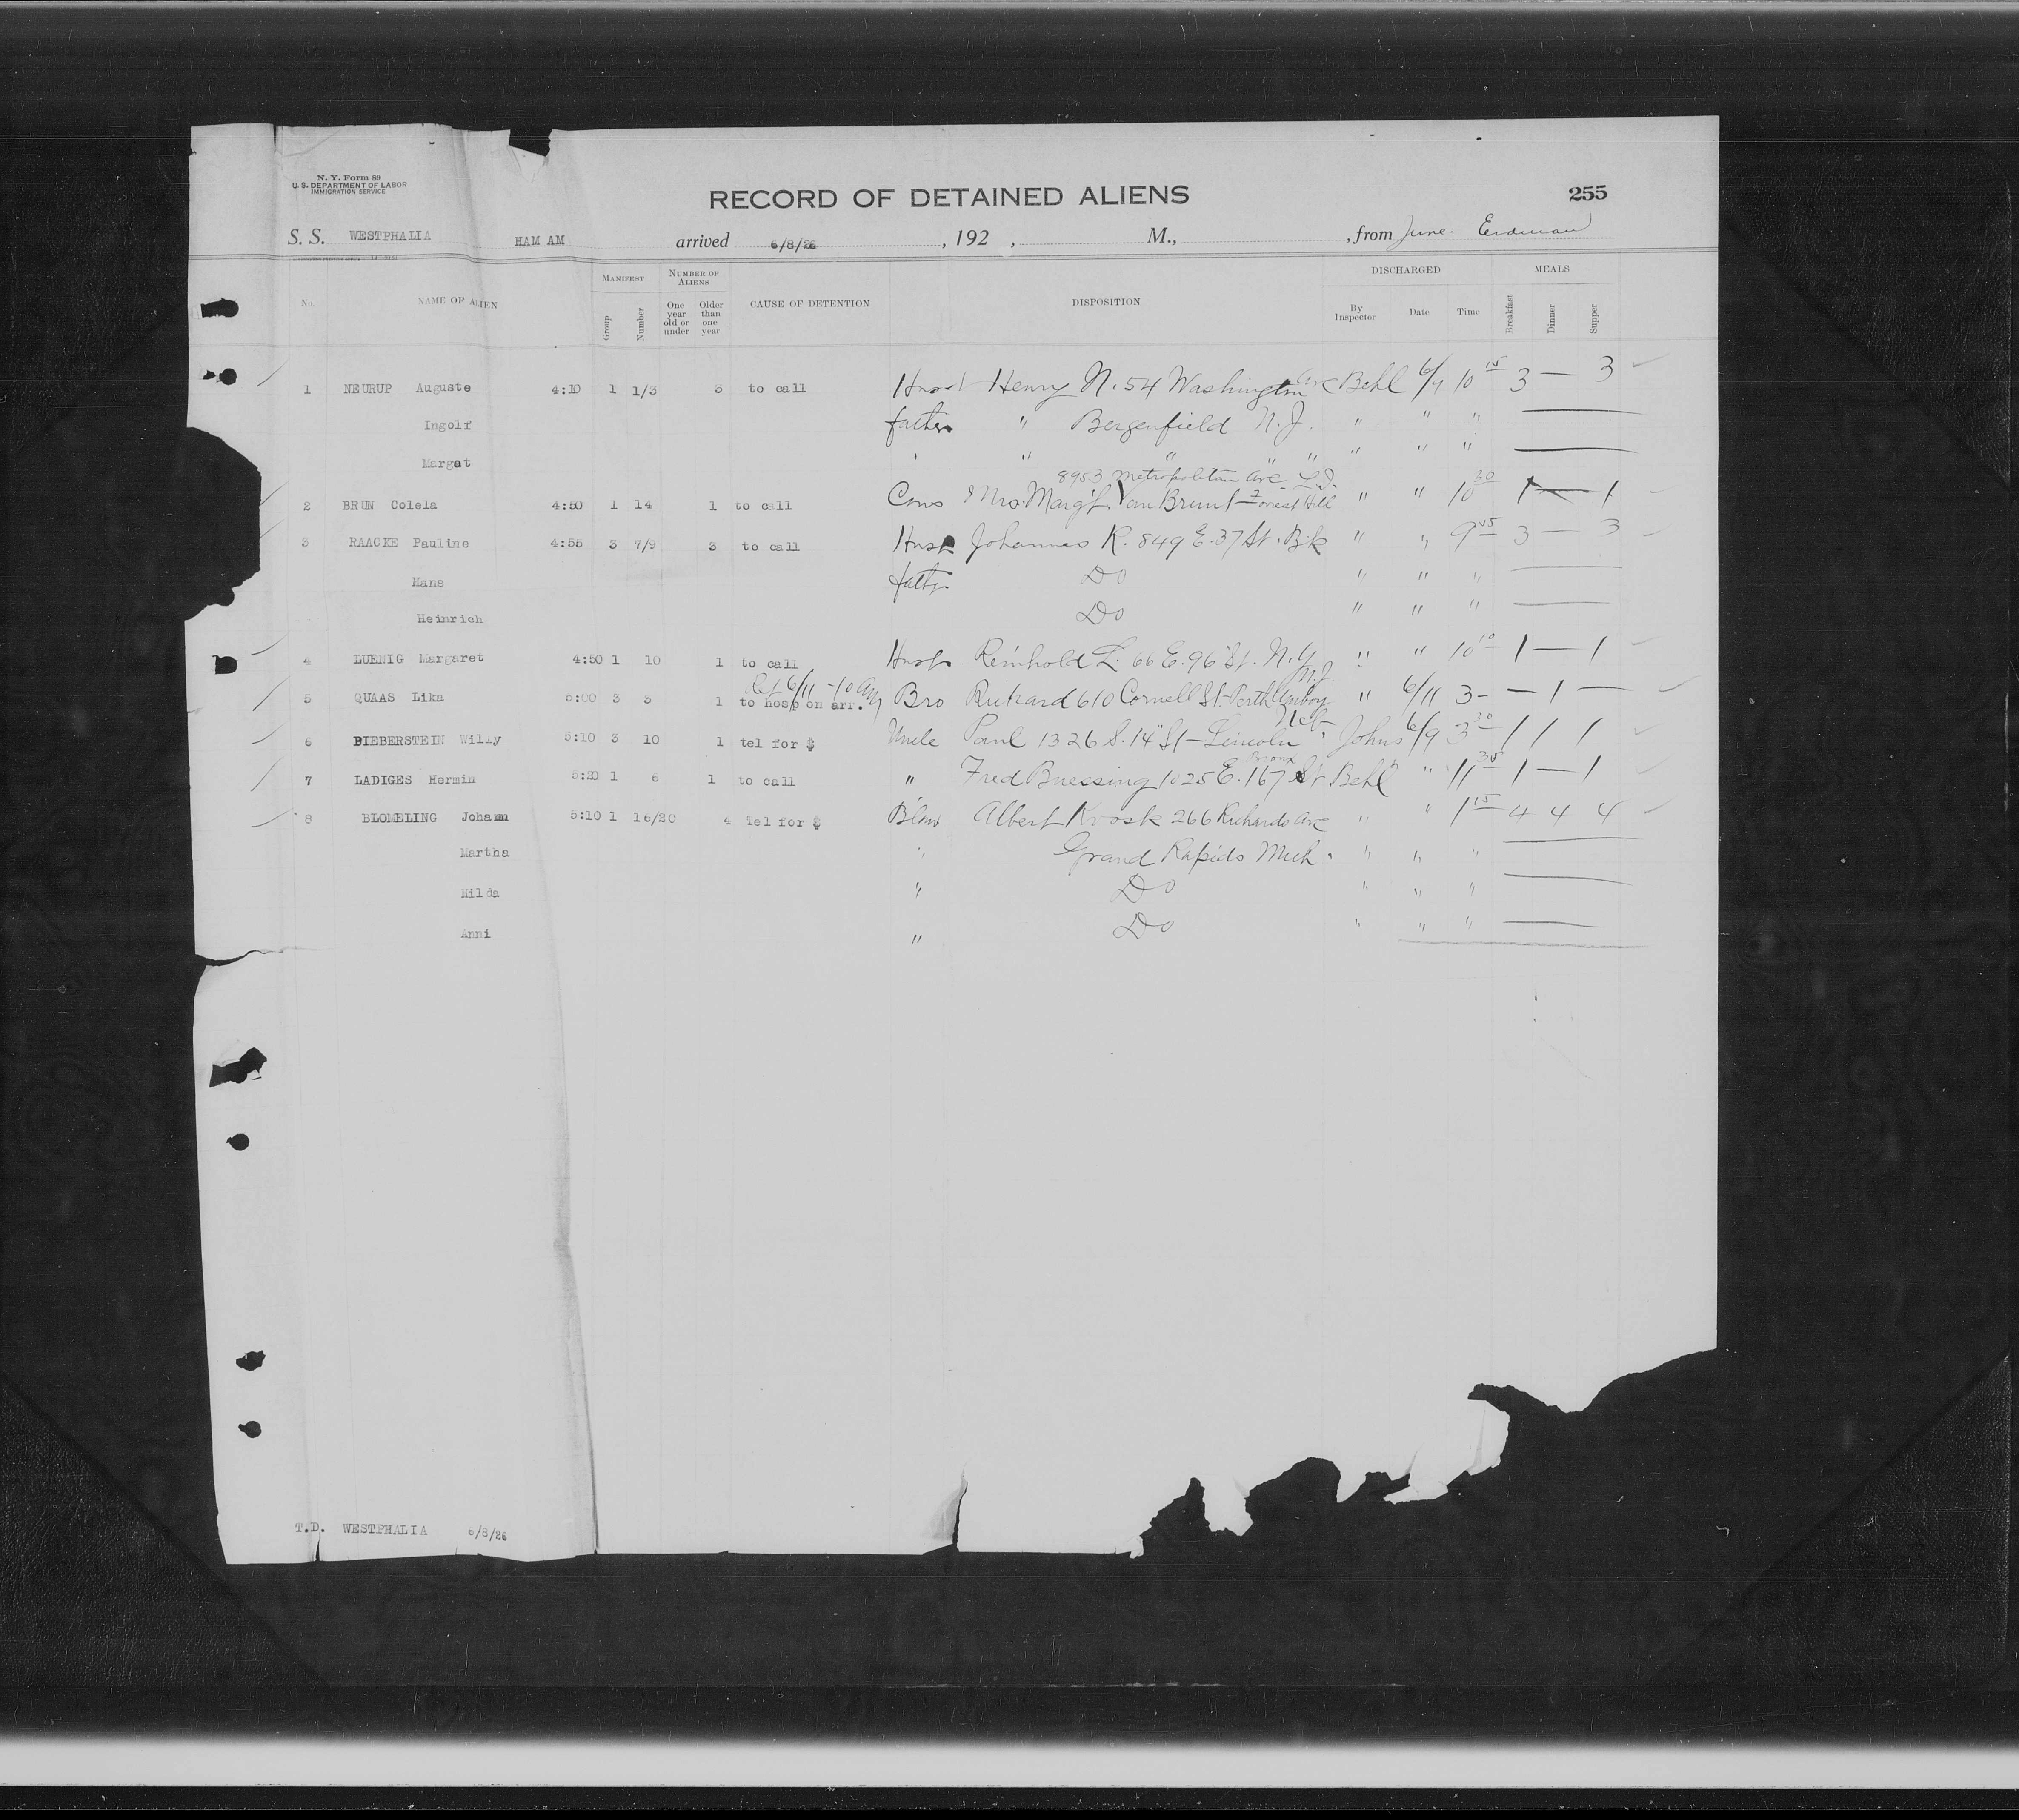 N. Y. Form 89
U. S. DEPARTMENT OF LABOR
IMMIGRATION SERVICE
RECORD OF DETAINED ALIENS 255
S. S. WESTPHALIA HAM AM arrived 6/8/26 , 192 , M., , from June Erdman
MANIFEST NUMBER OF ALIENS DISCHARGED MEALS
No. NAME OF ALIEN Group Number One year old or under Older than one year CAUSE OF DETENTION DISPOSITION By Inspector Date Time Breakfast Dinner Supper
1 NEURUP Auguste 4:10 1 1/3 3 to call Husb Henry N. 54 Washington Ave Behl 6/9 10 15 3 — 3
Ingolf father " Bergenfield N.J. " " "
Margat " " " " " " "
8953 Metropolitan Ave. L.I.
2 BRUN Colela 4:50 1 14 1 to call Cous Mrs. Marg't Van Brunt Forest Hill " " 10 30 1 — 1
3 RAACKE Pauline 4:55 3 7/9 3 to call Husb Johannes R. 849 E. 37 St. Bk " " 9 45 3 — 3
Hans father Do " " "
Heinrich Do " " "
4 LUENIG Margaret 4:50 1 10 1 to call Husb Reinhold L. 66 E. 96 St. N.Y. " " 10 10 1 — 1
Ret 6/11 - 10 AM N.J.
5 QUAAS Lika 5:00 3 3 1 to hosp on arr. Bro Richard 610 Cornell St - Perth Amboy " 6/11 3- — 1 —
Neb
6 BIEBERSTEIN Willy 5:10 3 10 1 tel for $ Uncle Paul 1326 S. 14" St - Lincoln Johns 6/9 3 30 1 1 1
Bronx
7 LADIGES Hermin 5:20 1 6 1 to call " Fred Buessing 1025 E. 167 St Behl " 11 35 1 — 1
8 BLOMELING Johann 5:10 1 16/20 4 Tel for $ B'law Albert Krosk 266 Richards Ave " " 1 15 4 4 4
Martha " Grand Rapids Mich. " " "
Hilda " Do " " "
Anni " Do " " "
T.D. WESTPHALIA 6/8/26